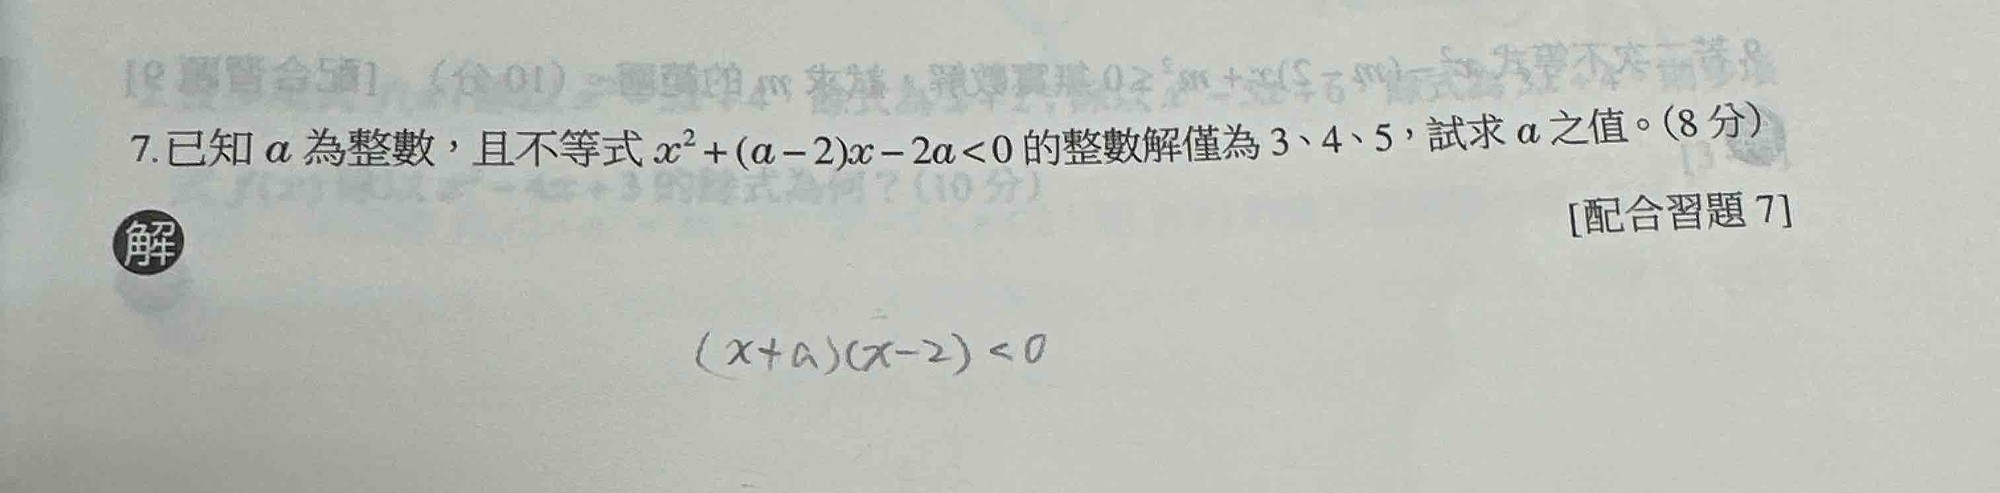 7.已知 a 為整數，且不等式 x²+(a−2)x−2a<0 的整數解僅為 3、4、5，試求 a 之值。(8 分)
[配合習題 7]
解
(x+a)(x−2)<0